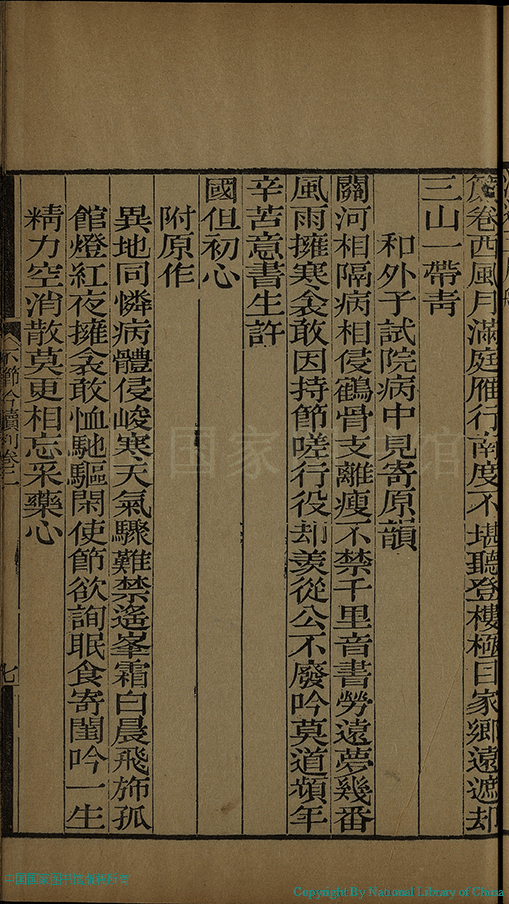 卷西風月滿庭雁行南度不堪聽登樓極目家鄉遠遮却
三山一帶青
和外子試院病中見寄原韻
關河相隔病相侵鶴骨支離瘦不禁千里音書勞遠夢幾番
風雨擁寒衾敢因持節嗟行役却羨從公不廢吟莫道頻年
辛苦意書生許
國但初心
附原作
異地同憐病體侵峻寒天氣驟難禁遙峯霜白晨飛旆孤
館燈紅夜擁衾敢恤馳驅閑使節欲詢眠食寄閨吟一生
精力空消散莫更相忘采藥心
吟續刻卷二
七
Copyright By National Library of China